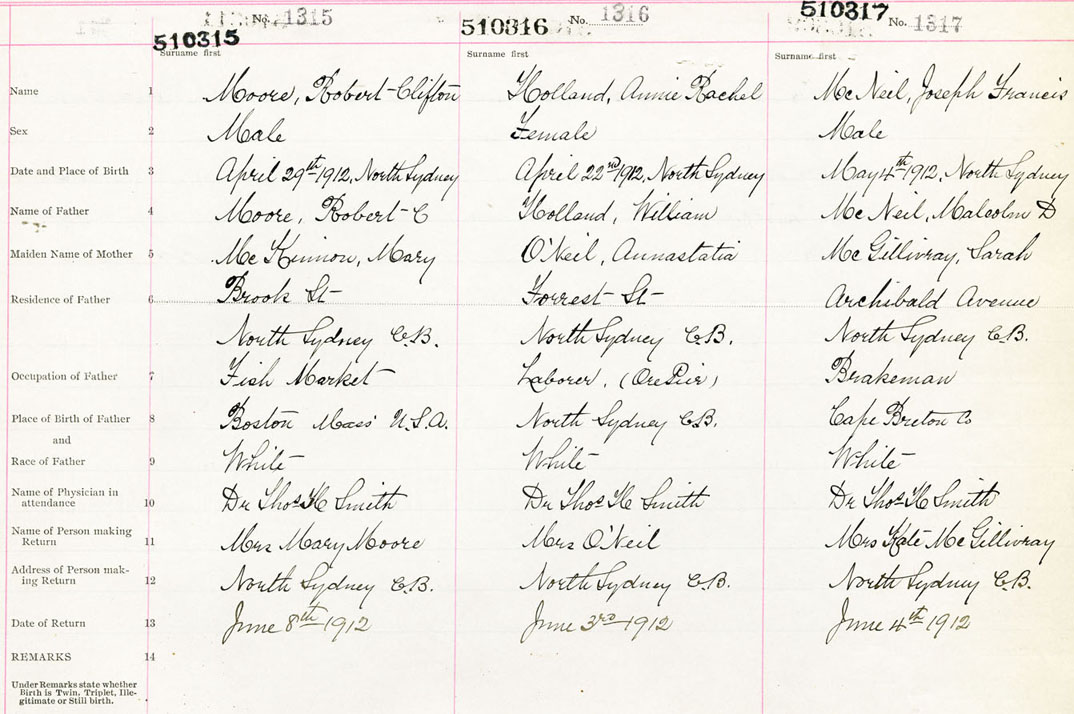 No. 1315 510316 No. 1316 510317 No. 1317
510315
Surname first Surname first Surname first
Name 1 Moore, Robert-Clifton Holland, Annie Rachel McNeil, Joseph Francis
Sex 2 Male Female Male
Date and Place of Birth 3 April 29th 1912, North Sydney April 22nd 1912, North Sydney May 4th 1912, North Sydney
Name of Father 4 Moore, Robert-C Holland, William McNeil, Malcolm D
Maiden Name of Mother 5 McKinnon, Mary O'Neil, Annastatia McGillivray, Sarah
Residence of Father 6 Brook St Forrest St Archibald Avenue
North Sydney C.B. North Sydney C.B. North Sydney C.B.
Occupation of Father 7 Fish Market Laborer, (Ore Pier) Brakeman
Place of Birth of Father 8 Boston Mass U.S.A. North Sydney C.B. Cape Breton Co
and
Race of Father 9 White White White
Name of Physician in
attendance 10 Dr Thos H Smith Dr Thos H Smith Dr Thos H Smith
Name of Person making
Return 11 Mrs Mary Moore Mrs O'Neil Mrs Kate McGillivray
Address of Person mak-
ing Return 12 North Sydney C.B. North Sydney C.B. North Sydney C.B.
Date of Return 13 June 8th 1912 June 3rd 1912 June 4th 1912
REMARKS 14
Under Remarks state whether
Birth is Twin, Triplet, Ille-
gitimate or Still birth.